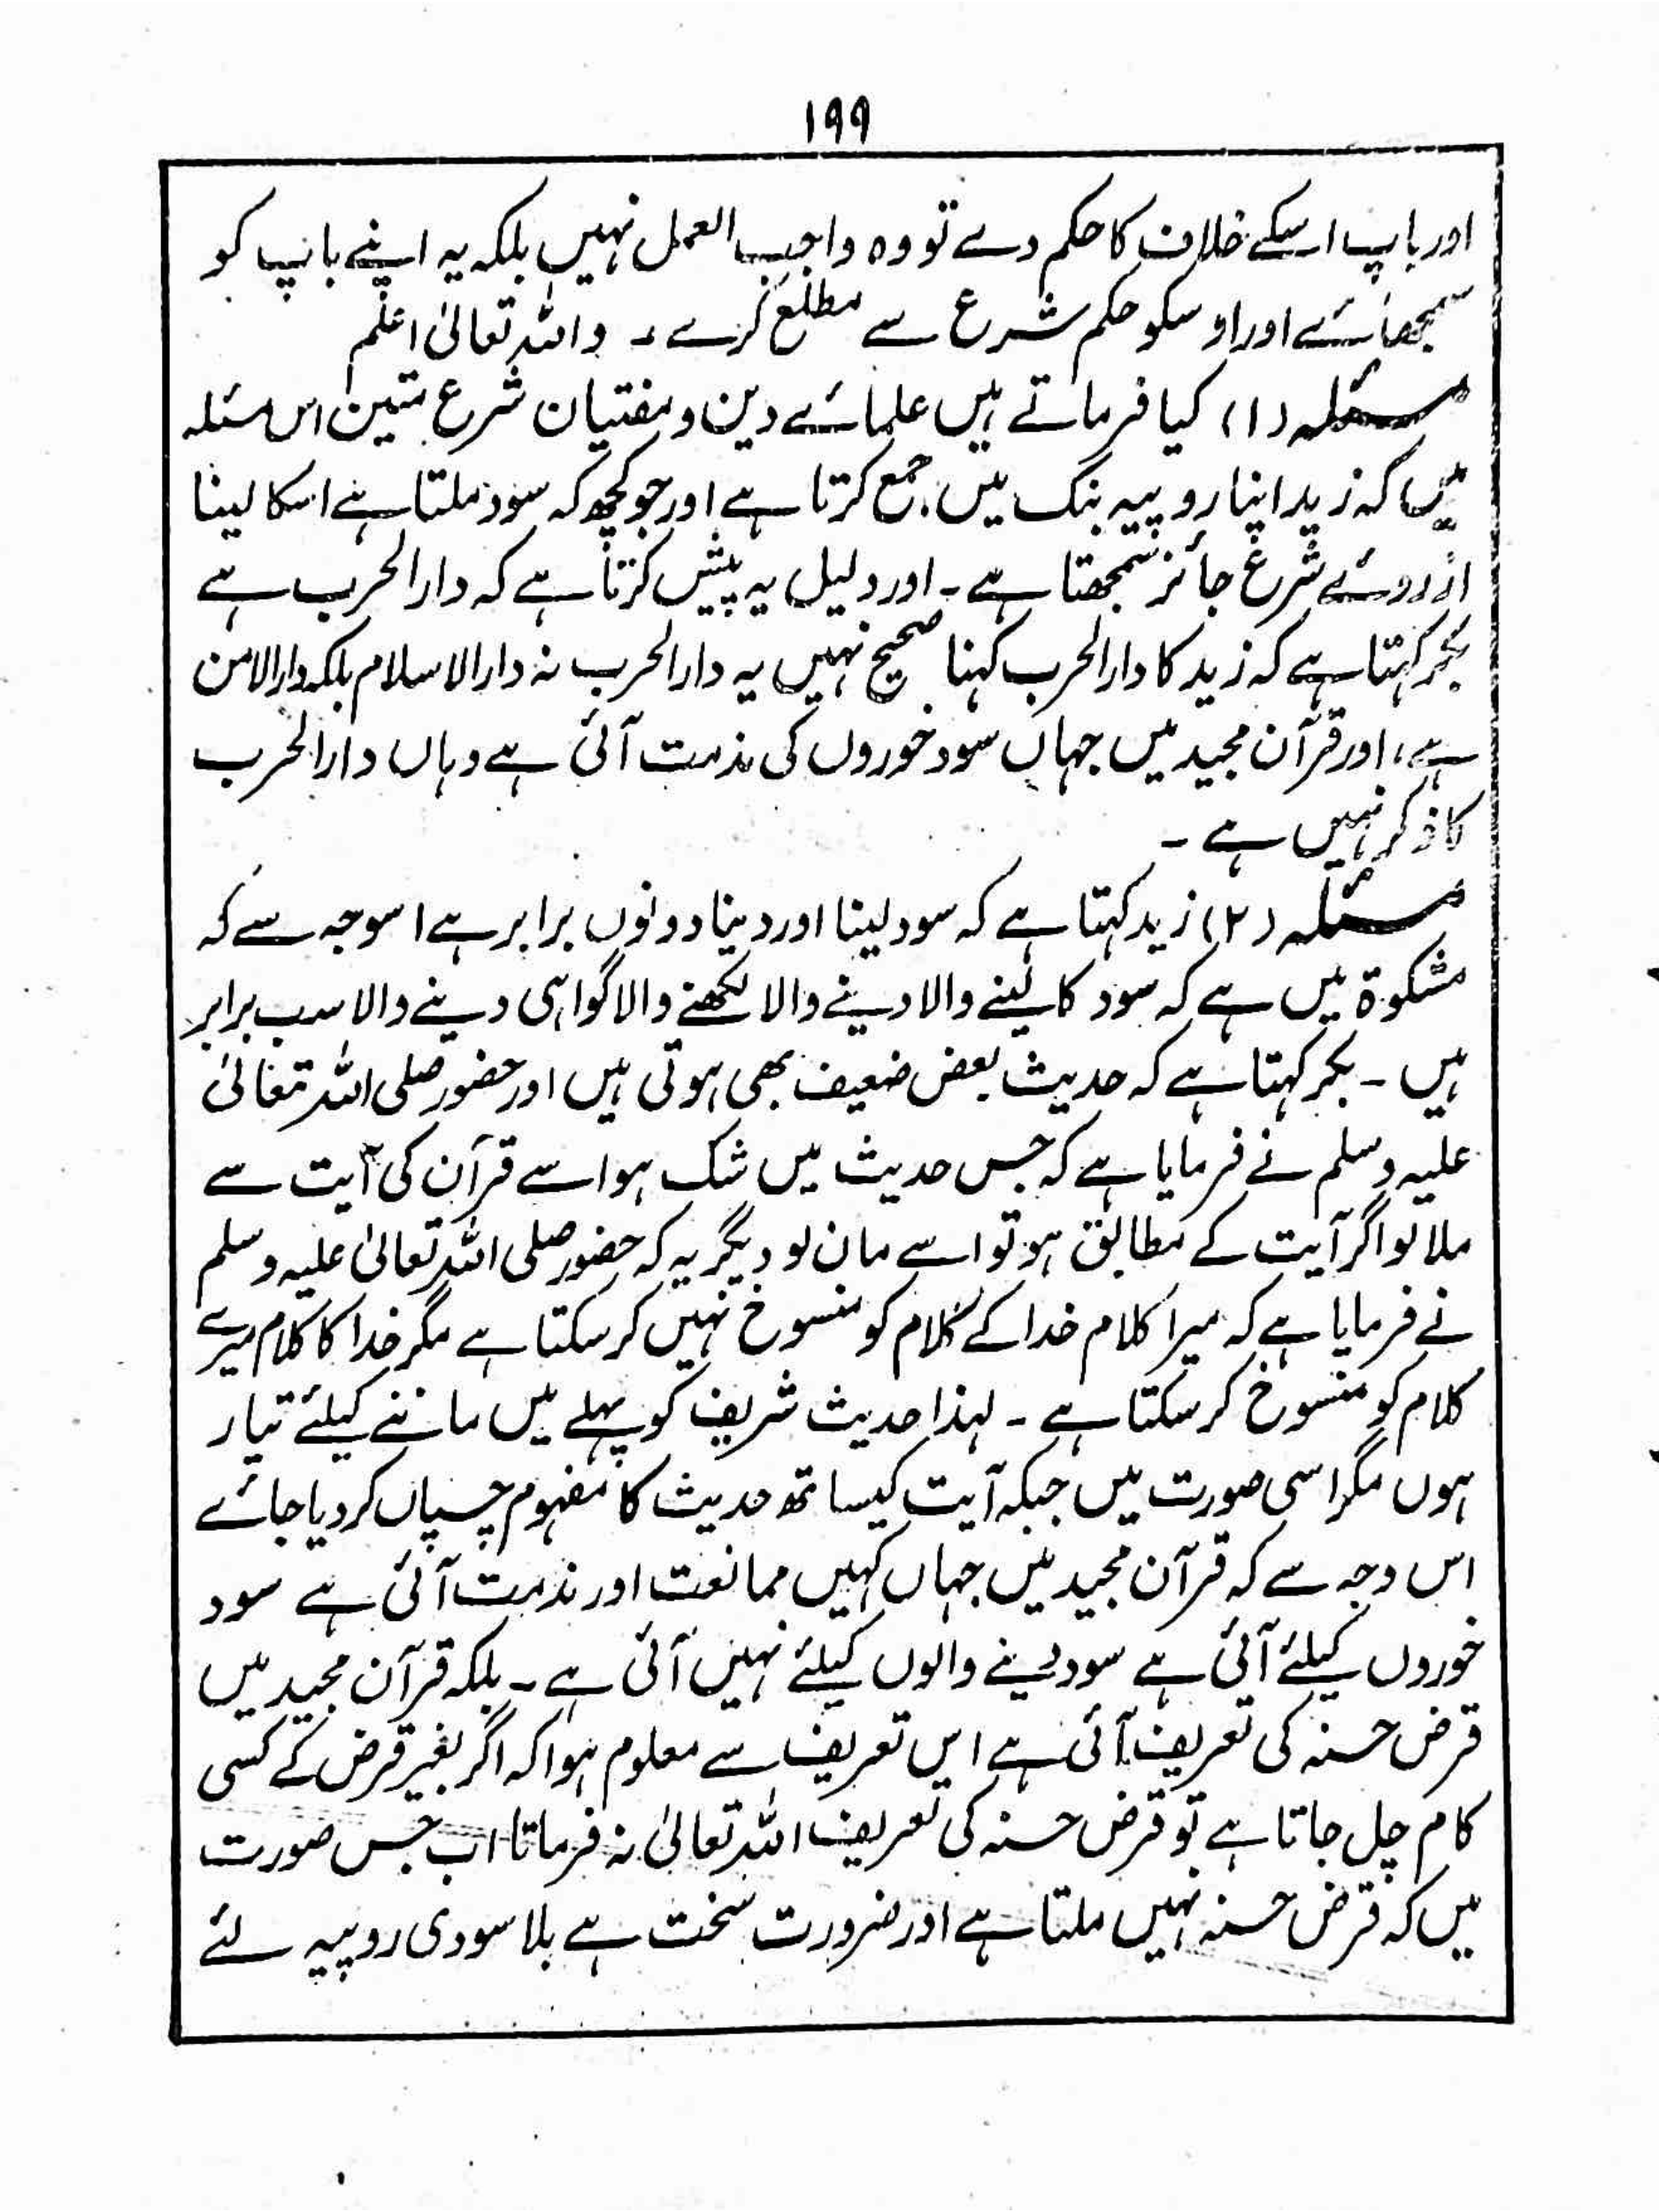 ۱۹۹
اور باپ اسکے خلاف کا حکم دے تو وہ واجب العمل نہیں بلکہ یہ اپنے باپ کو
سمجھائے اور اوسکو حکم شرع سے مطلع کرے ۔ واللہ تعالیٰ اعلم
مسئلہ (۱) کیا فرماتے ہیں علمائے دین و مفتیان شرع متین اس مسئلہ
میں کہ زید اپنا روپیہ بنک میں جمع کرتا ہے اور جو کچھ کہ سود ملتا ہے اسکا لینا
از روئے شرع جائز سمجھتا ہے ۔ اور دلیل یہ پیش کرتا ہے کہ دارالحرب ہے
بکر کہتا ہے کہ زید کا دارالحرب کہنا صحیح نہیں یہ دارالحرب نہ دارالاسلام بلکہ دارالامن
ہے، اور قرآن مجید میں جہاں سود خوروں کی مذمت آئی ہے وہاں دارالحرب
کا ذکر نہیں ہے ۔
مسئلہ (۲) زید کہتا ہے کہ سود لینا اور دینا دونوں برابر ہے اسوجہ سے کہ
مشکوۃ میں ہے کہ سود کا لینے والا دینے والا لکھنے والا گواہی دینے والا سب برابر
ہیں ۔ بکر کہتا ہے کہ حدیث بعض ضعیف بھی ہوتی ہیں اور حضور صلی اللہ تعالیٰ
علیہ وسلم نے فرمایا ہے کہ جس حدیث میں شک ہو اسے قرآن کی آیت سے
ملا لو اگر آیت کے مطابق ہو تو اسے مان لو دیگر یہ کہ حضور صلی اللہ تعالیٰ علیہ وسلم
نے فرمایا ہے کہ میرا کلام خدا کے کلام کو منسوخ نہیں کر سکتا ہے مگر خدا کا کلام میرے
کلام کو منسوخ کر سکتا ہے ۔ لہذا حدیث شریف کو پہلے میں ماننے کیلئے تیار
ہوں مگر اسی صورت میں جبکہ آیت کیساتھ حدیث کا مفہوم چسپاں کر دیا جائے
اس وجہ سے کہ قرآن مجید میں جہاں کہیں ممانعت اور مذمت آئی ہے سود
خوروں کیلئے آئی ہے سود دینے والوں کیلئے نہیں آئی ہے ۔ بلکہ قرآن مجید میں
قرض حسنہ کی تعریف آئی ہے اس تعریف سے معلوم ہوا کہ اگر بغیر قرض کے کسی
کام چل جاتا ہے تو قرض حسنہ کی تعریف اللہ تعالیٰ نہ فرماتا اب جس صورت
میں کہ قرض حسنہ نہیں ملتا ہے اور ضرورت سخت ہے بلا سودی روپیہ لئے